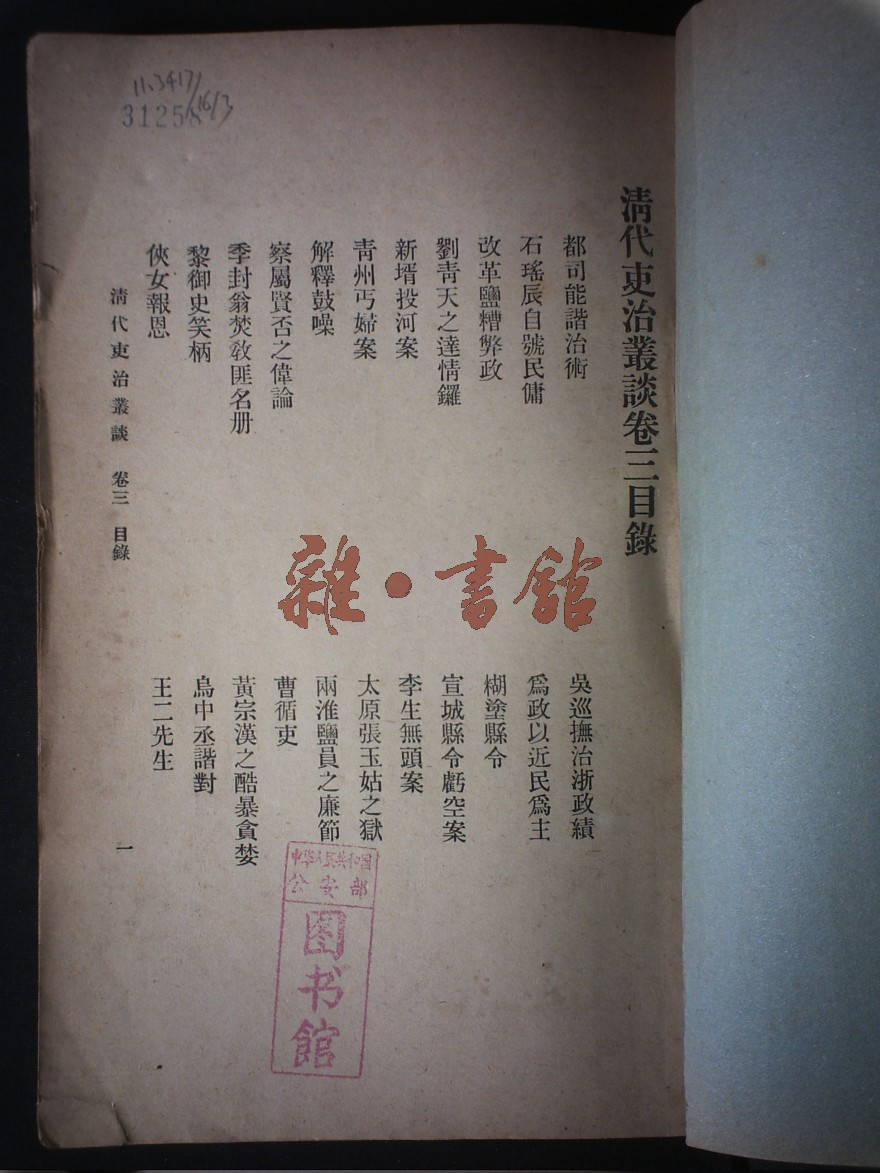 11.3417/16/3
31258
清代吏治叢談卷三目錄
都司能諧治術
吳巡撫治浙政績
石瑤辰自號民傭
爲政以近民爲主
改革鹽糟弊政
糊塗縣令
劉青天之達情鑼
宣城縣令虧空案
新壻投河案
李生無頭案
青州丐婦案
太原張玉姑之獄
解釋鼓噪
兩淮鹽員之廉節
察屬賢否之偉論
曹循吏
季封翁焚教匪名册
黃宗漢之酷暴貪婪
黎御史笑柄
烏中丞諧對
俠女報恩
王二先生
清代吏治叢談 卷三 目錄
一
雜·書館
中华人民共和国
公安部
图书馆